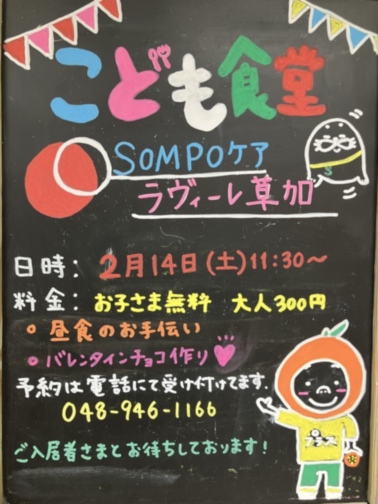 こども食堂
SOMPOケア
ラヴィーレ草加
S
日時: 2月14日(土)11:30〜
料金: お子さま無料 大人300円
○ 昼食のお手伝い
○ バレンタインチョコ作り♥
予約は電話にて受け付けてます.
048-946-1166
ご入居者さまとお待ちしております!